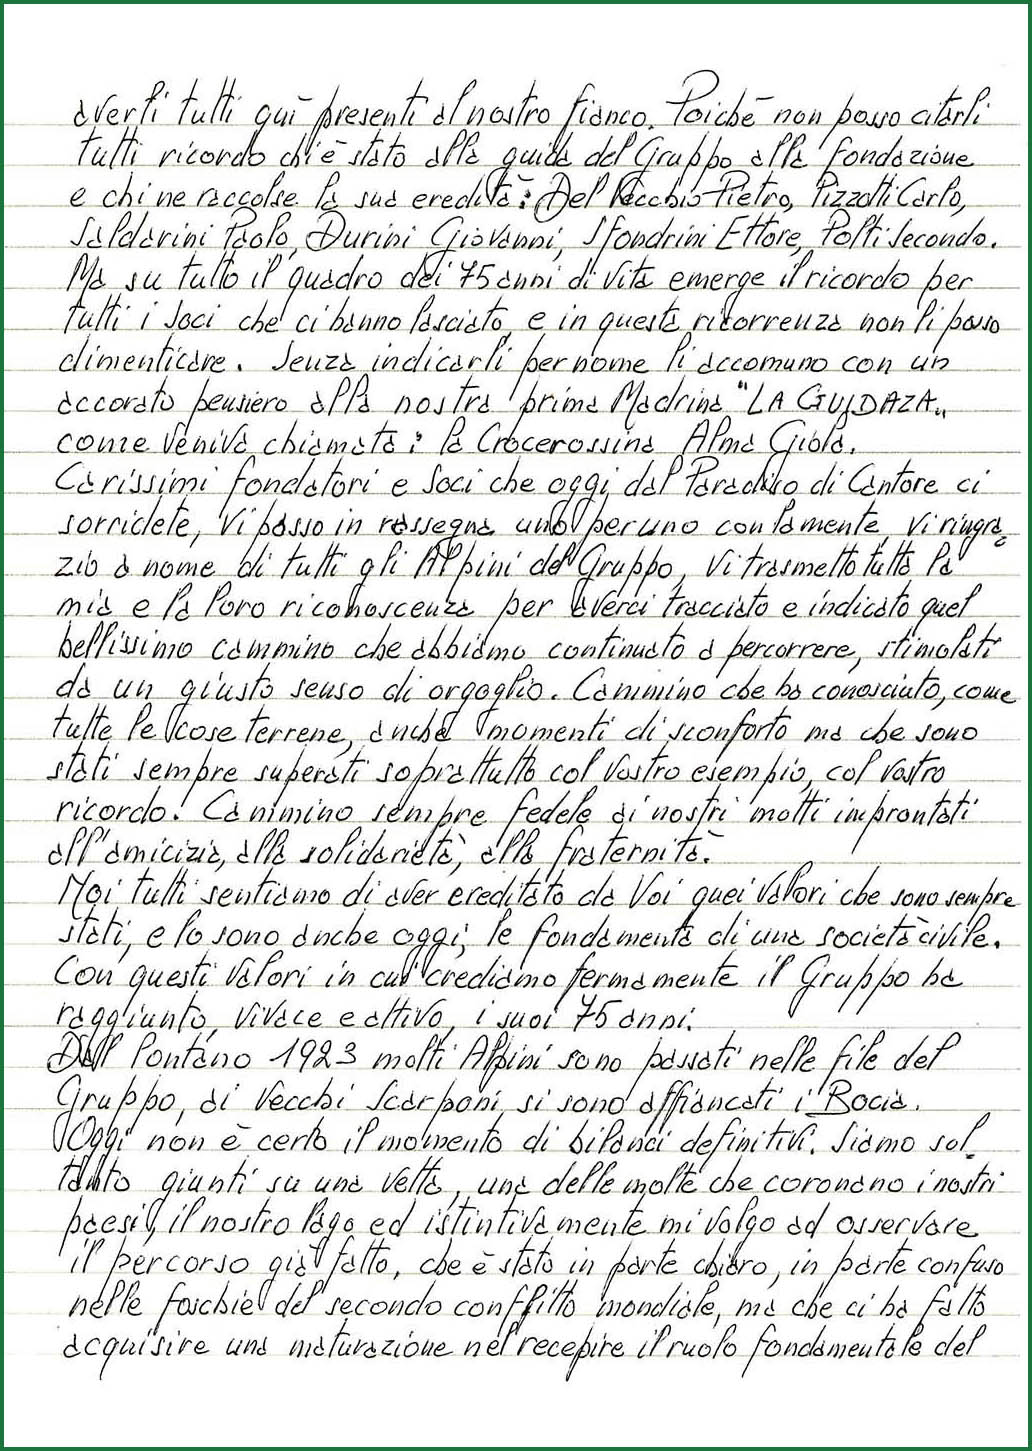 averli tutti quì presenti al nostro fianco. Poiché non posso citarli
tutti ricordo chi è stato alla guida del Gruppo alla fondazione
e chi ne raccolse la sua eredità: Del Vecchio Pietro, Pizzotti Carlo,
Saldarini Paolo, Durini Giovanni, Sfondrini Ettore, Polti Secondo.
Ma su tutto il quadro dei 75 anni di vita emerge il ricordo per
tutti i Soci che ci hanno lasciato, e in questa ricorrenza non li posso
dimenticare. Senza indicarli per nome li accomuno con un
accorato pensiero alla nostra prima Madrina "LA GUIDAZA"
come veniva chiamata: la Crocerossina Alma Giola.
Carissimi fondatori e Soci che oggi dal Paradiso di Cantore ci
sorridete, vi passo in rassegna uno per uno con la mente, vi ringra=
zio a nome di tutti gli Alpini del Gruppo, vi trasmetto tutta la
mia e la loro riconoscenza per averci tracciato e indicato quel
bellissimo cammino che abbiamo continuato a percorrere, stimolati
da un giusto senso di orgoglio. Cammino che ha conosciuto, come
tutte le cose terrene, anche momenti di sconforto ma che sono
stati sempre superati soprattutto col Vostro esempio, col vostro
ricordo. Cammino sempre fedele ai nostri motti improntati
all'amicizia, alla solidarietà, alla fraternità.
Noi tutti sentiamo di aver ereditato da Voi quei valori che sono sempre
stati, e lo sono anche oggi, le fondamenta di una società civile.
Con questi valori in cui crediamo fermamente il Gruppo ha
raggiunto, vivace e attivo, i suoi 75 anni.
Dal lontano 1923 molti Alpini sono passati nelle file del
Gruppo, ai Vecchi Scarponi, si sono affiancati i Bocia.
Oggi non è certo il momento di bilanci definitivi. Siamo sol-
tanto giunti su una vetta, una delle molte che coronano i nostri
paesi, il nostro lago ed istintivamente mi volgo ad osservare
il percorso già fatto, che è stato in parte chiaro, in parte confuso
nelle foschie del secondo conflitto mondiale, ma che ci ha fatto
acquisire una maturazione nel recepire il ruolo fondamentale del